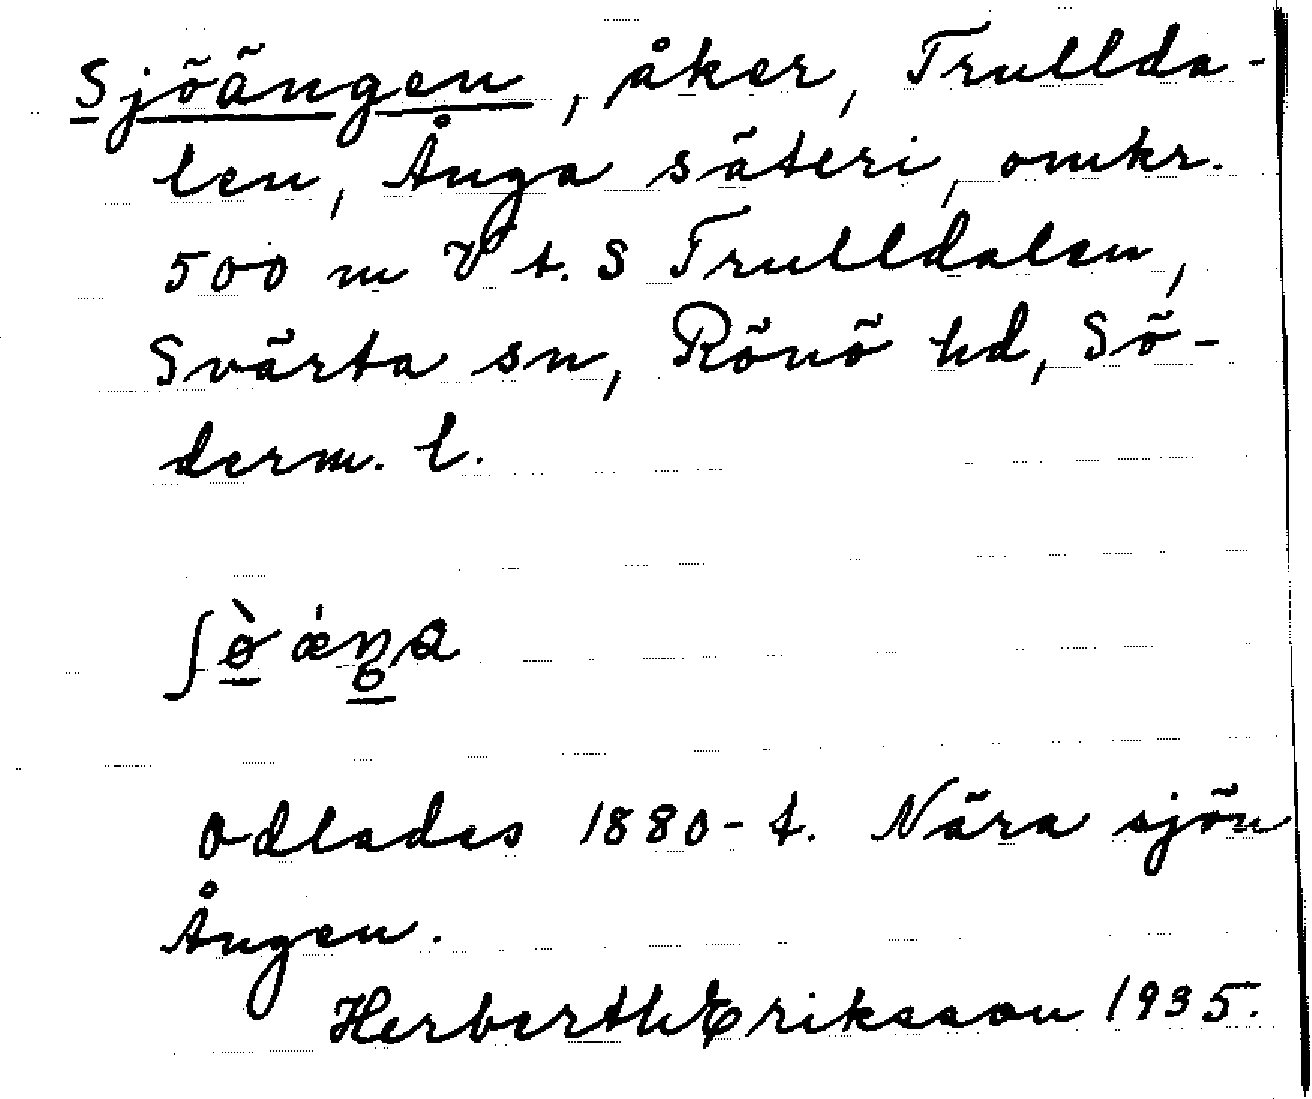 Sjöängen, åker, Trullda-
len, Ånga säteri, omkr.
500 m V t. S Trulldalen,
Svärta sn, Rönö hd, Sö-
derm. l.
ʃø̀ǽŋa
Odlades 1880-t. Nära sjön
Ången.
Herberth Eriksson 1935.